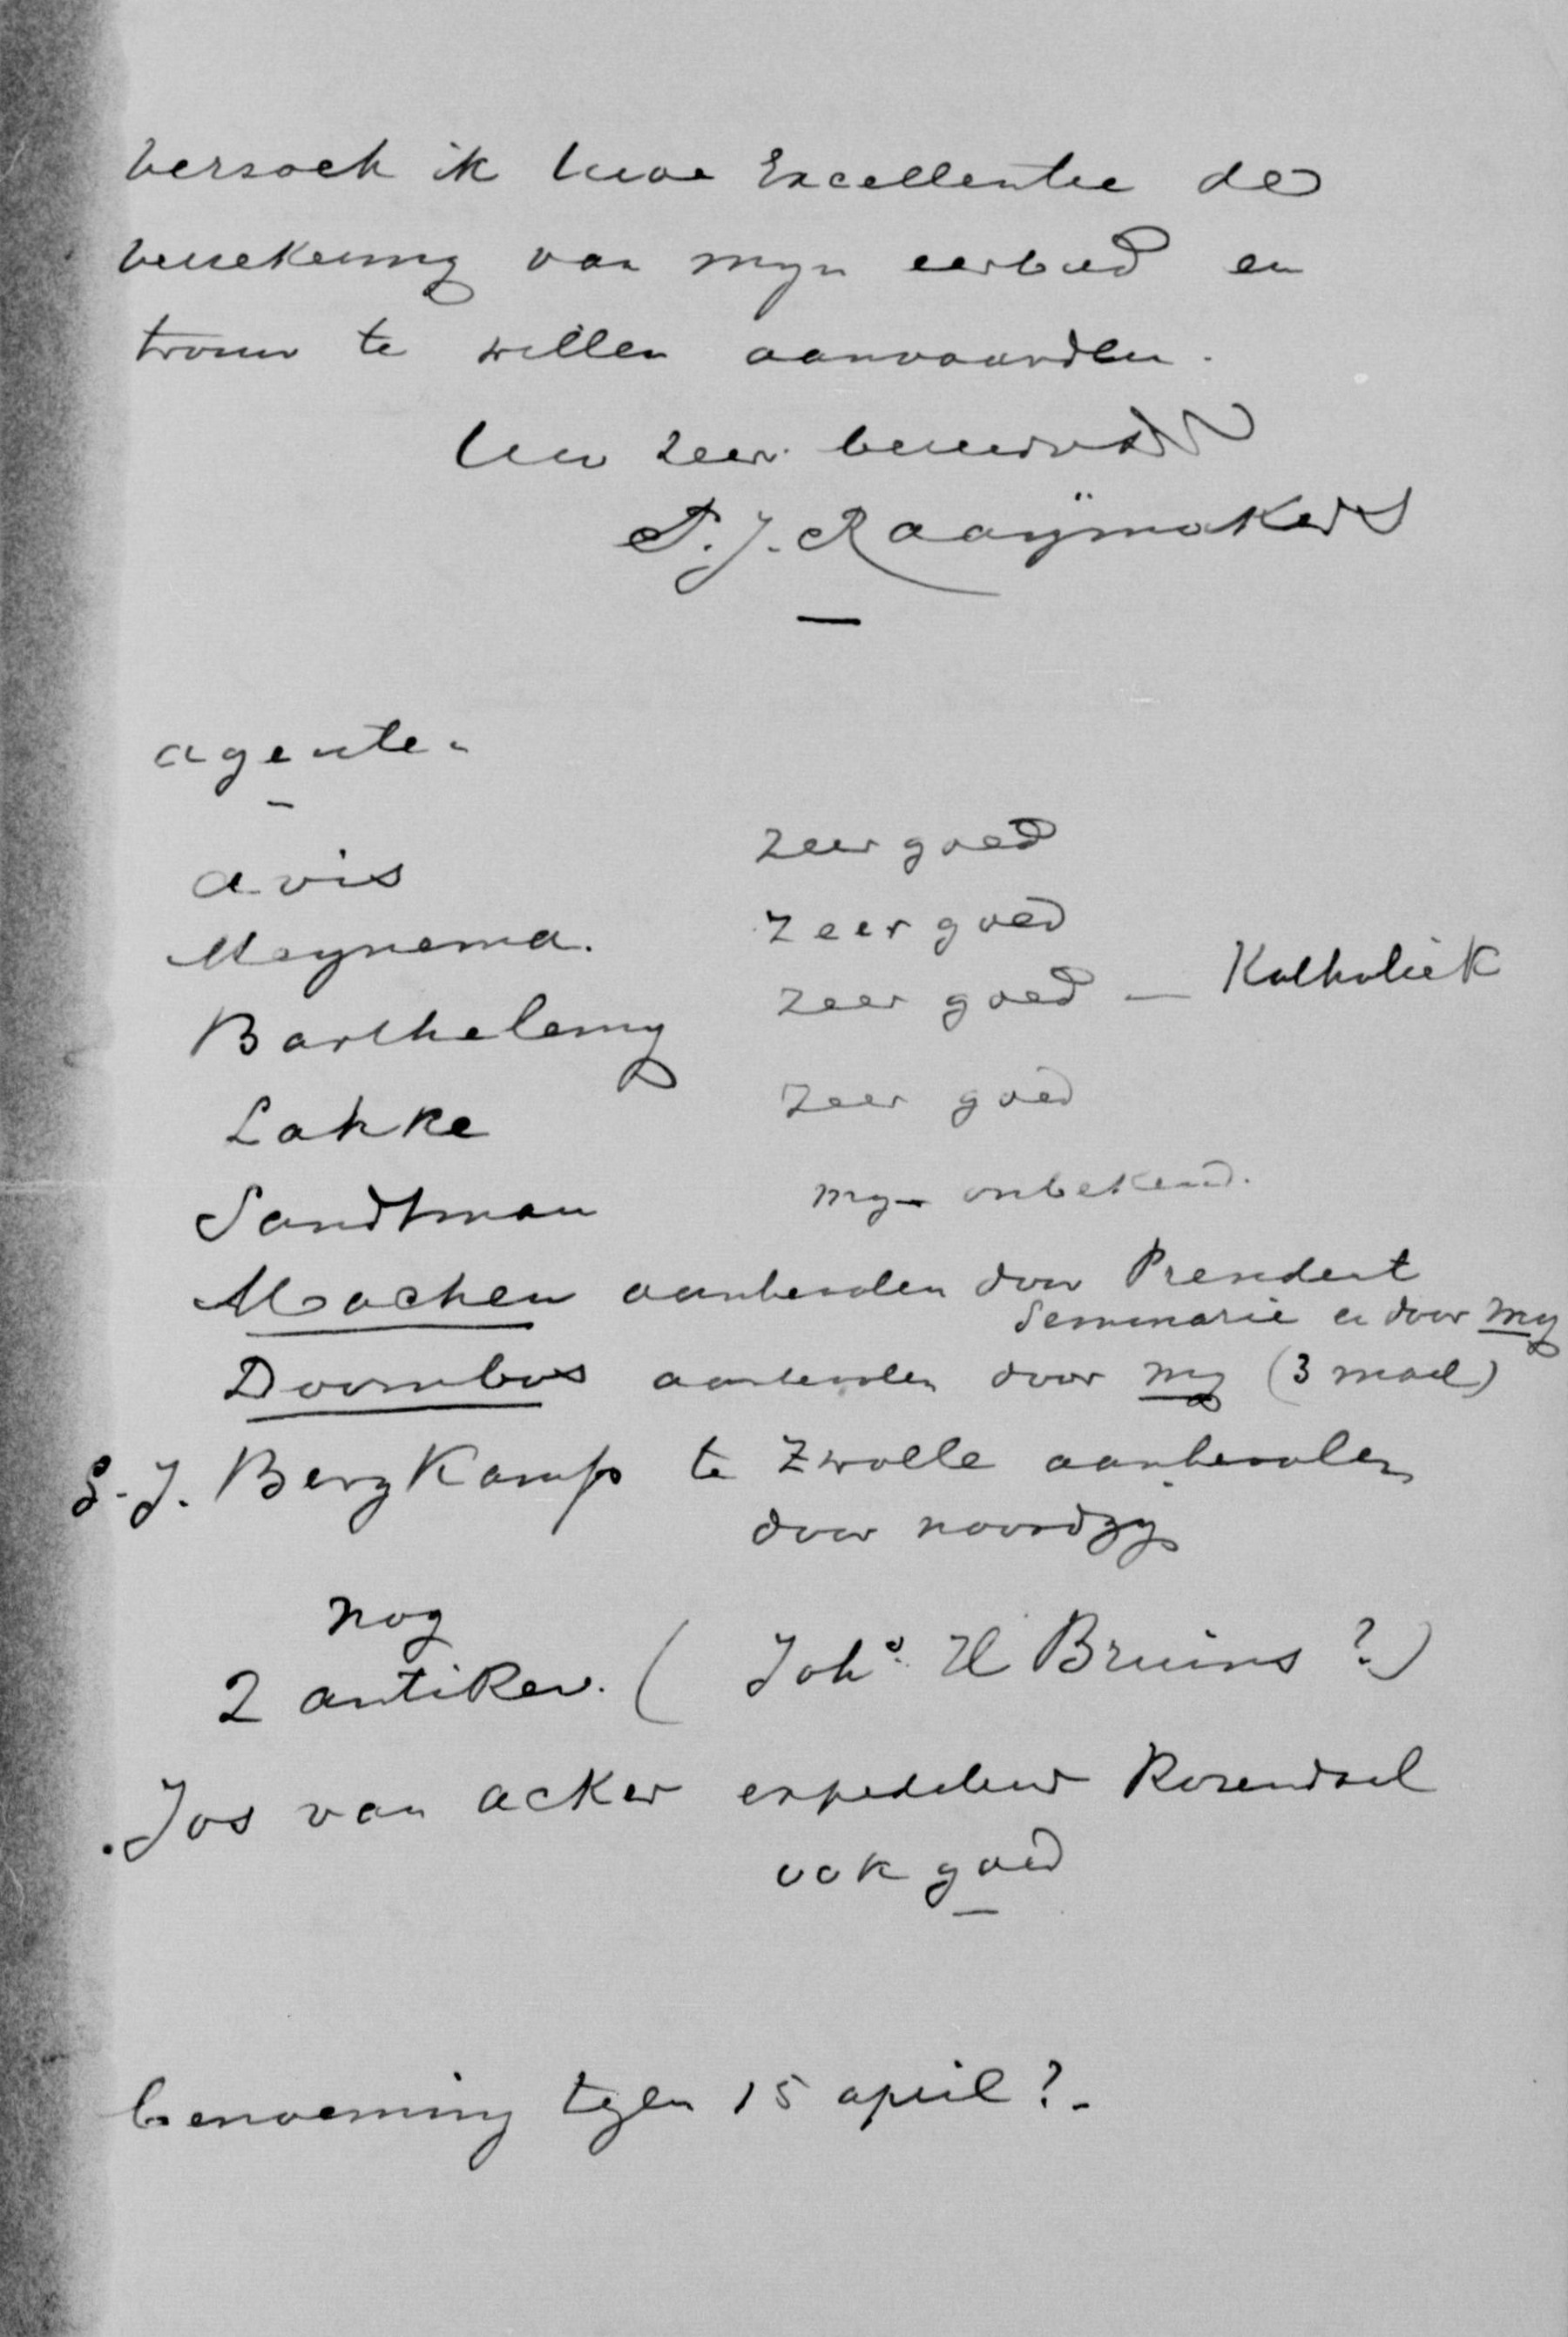 verzoek ik Uwe Excellentie de
verzekering van mijn eerbied en
trouw te willen aanvaarden.
Uw zeer
P. J. Raaÿmakers
agenten
avis zeer goed
Meynema. zeer goed
Barthelemy zeer goed — Katholiek
Lahke zeer goed
Sandtman mij onbekend.
Machen aanbevolen door President
Seminarie en door mij
Doornbos aanbevolen door mij (3 maal)
S. J. Bergkamp te Zwolle aanbevolen
door noordzij
nog
2 antiRev. ( Johs. H Bruins ?)
Jos van acker expediteur Rosendaal
ook goed
benoeming tegen 15 april ?-